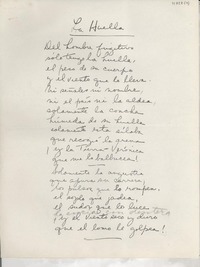 La Huella
Del hombre fugitivo
solo tengo la huella,
el peso de su cuerpo
y el viento que lo lleva.
Ni señales ni nombre,
ni el país ni la aldea;
solamente la concha
húmeda de su huella;
solamente esta sílaba
que recogió la arena
¡y la Tierra-Verónica
que me lo balbucea!
Solamente la angustia
que apura su carrera;
los pulsos que lo rompen,
el soplo que jadea,
el sudor que lo
y el viento seco y duro
que el lomo le golpea!